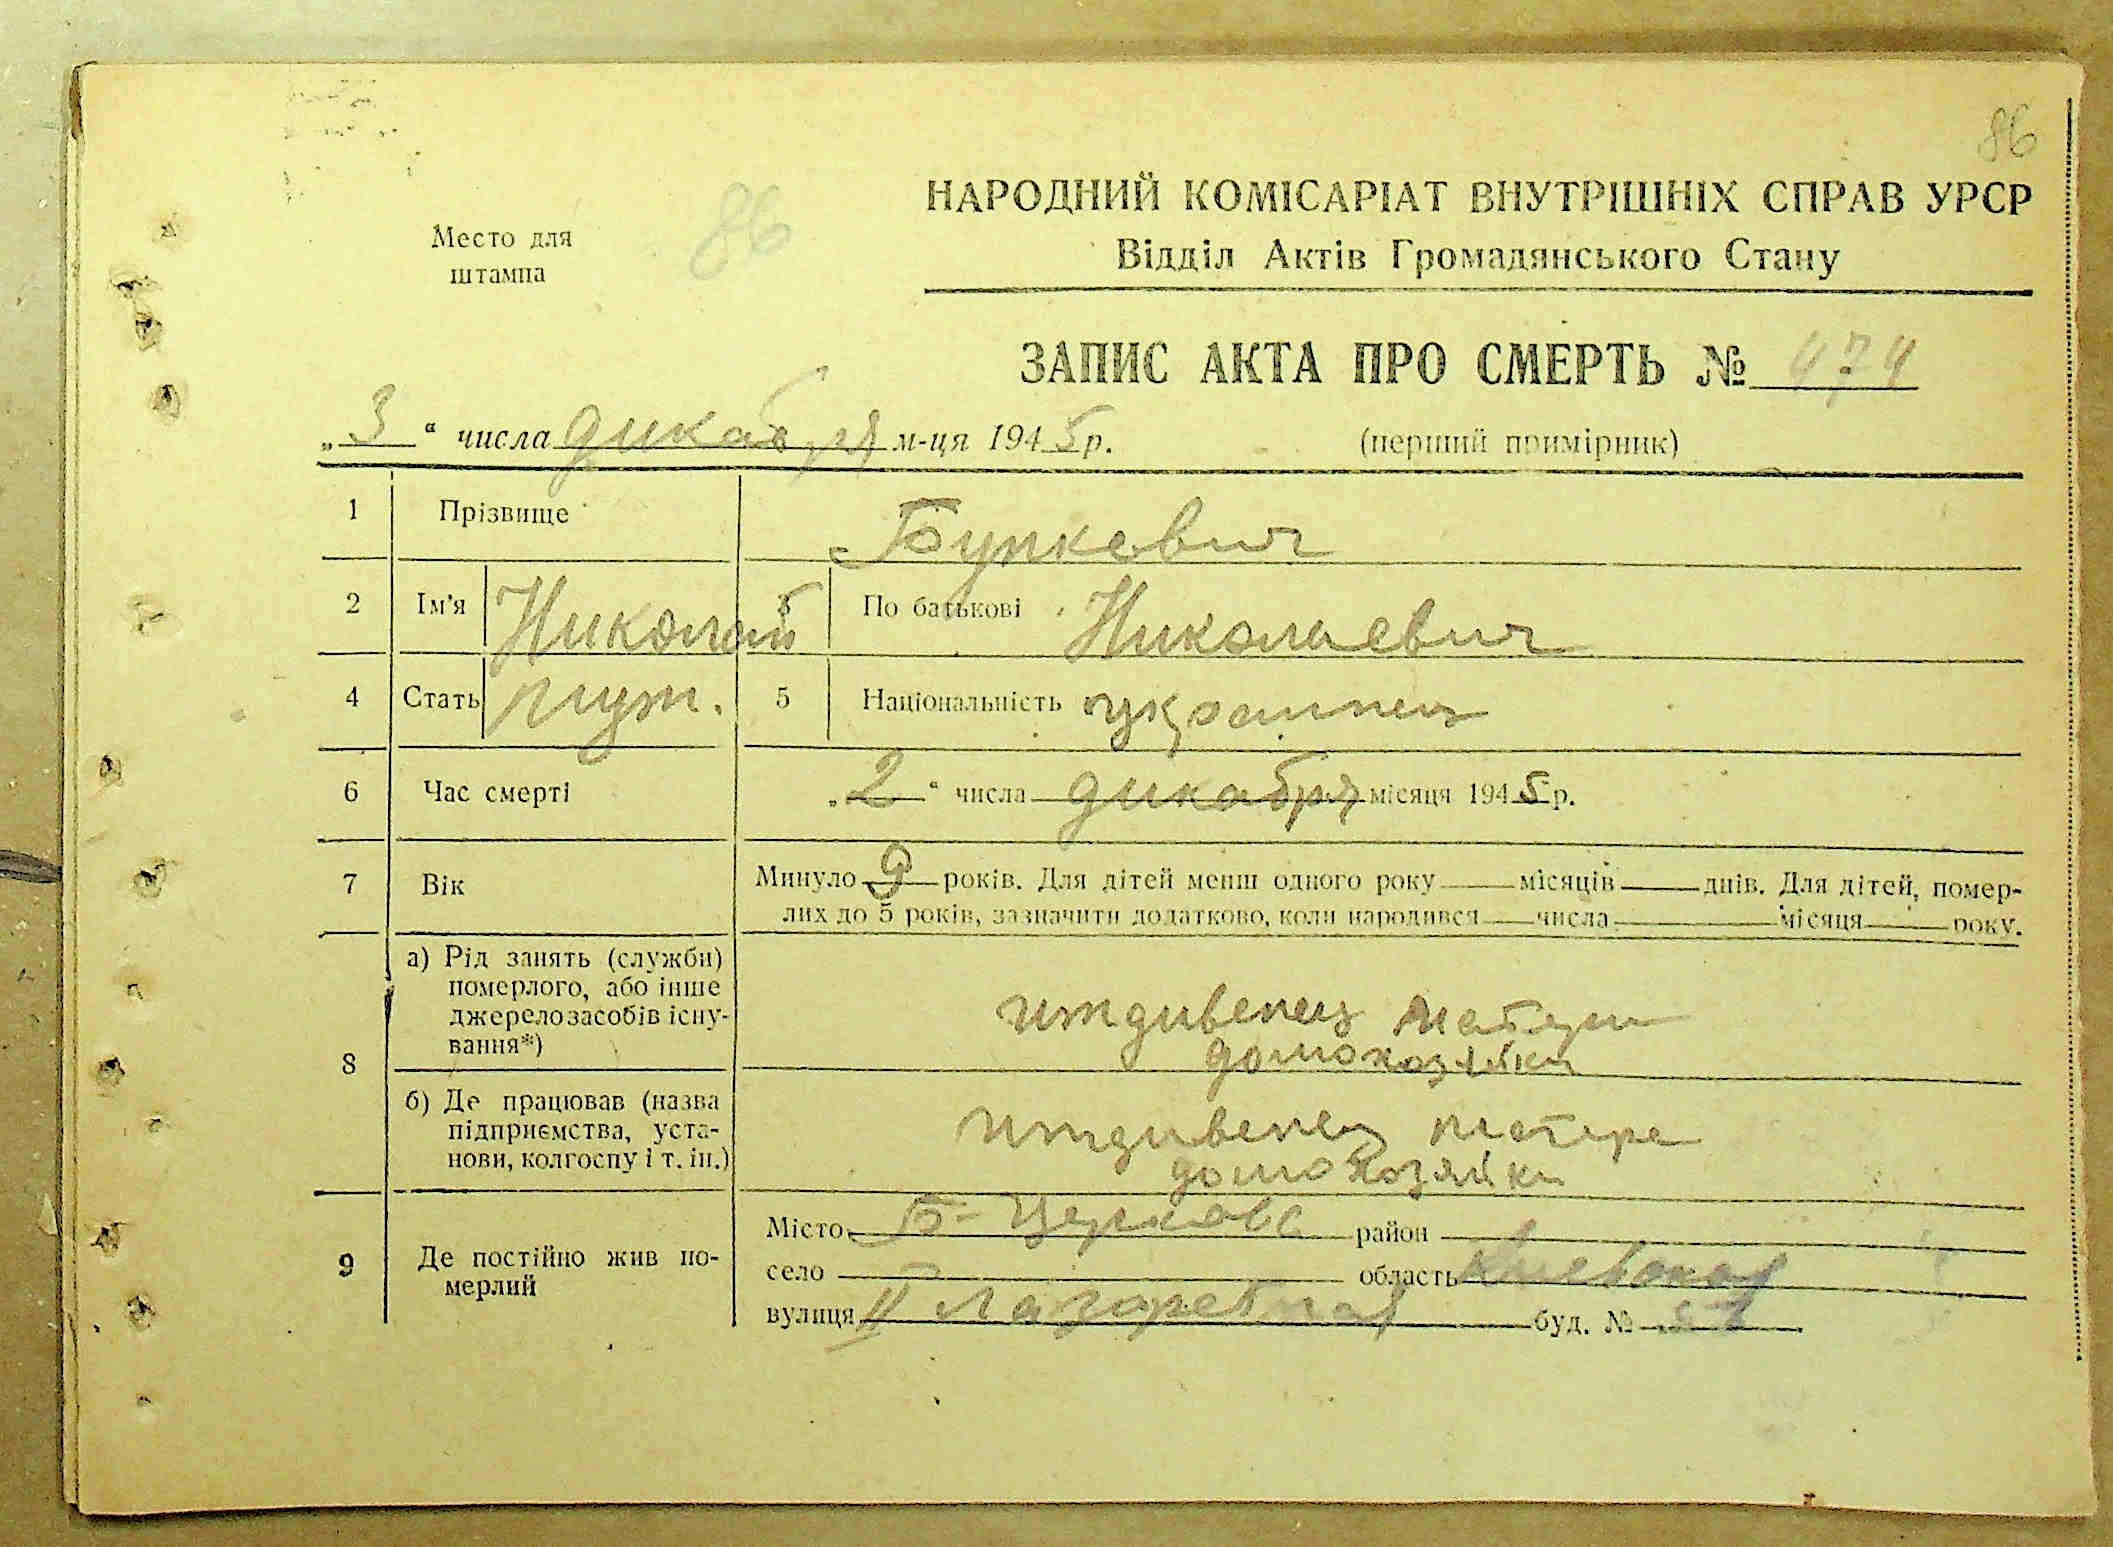 86
НАРОДНИЙ КОМІСАРІАТ ВНУТРІШНІХ СПРАВ УРСР
Место для штампа
86
Відділ Актів Громадянського Стану
ЗАПИС АКТА ПРО СМЕРТЬ № 474
„3“ числа дикабря м-ця 1945 р.
(перший примірник)
1 Прізвище Буркевич
2 Ім'я Николай 3 По батькові Николаевич
4 Стать муж. 5 Національність украинец
6 Час смерті „2“ числа дикабря місяця 1945 р.
7 Вік Минуло 9 років. Для дітей менш одного року місяців днів. Для дітей, помер-
лих до 5 років, зазначити додатково, коли народився числа місяця року.
8 а) Рід занять (служби)
померлого, або інше
джерело засобів існу-
вання*)
иждивенец матери
домохозяйки
б) Де працював (назва
підприємства, уста-
нови, колгоспу і т. ін.)
иждивенец матере
домохозяйки
9 Де постійно жив по-
мерлий
Місто Б-Церковь район
село область Киевская
вулиця II Лазаретная буд. №